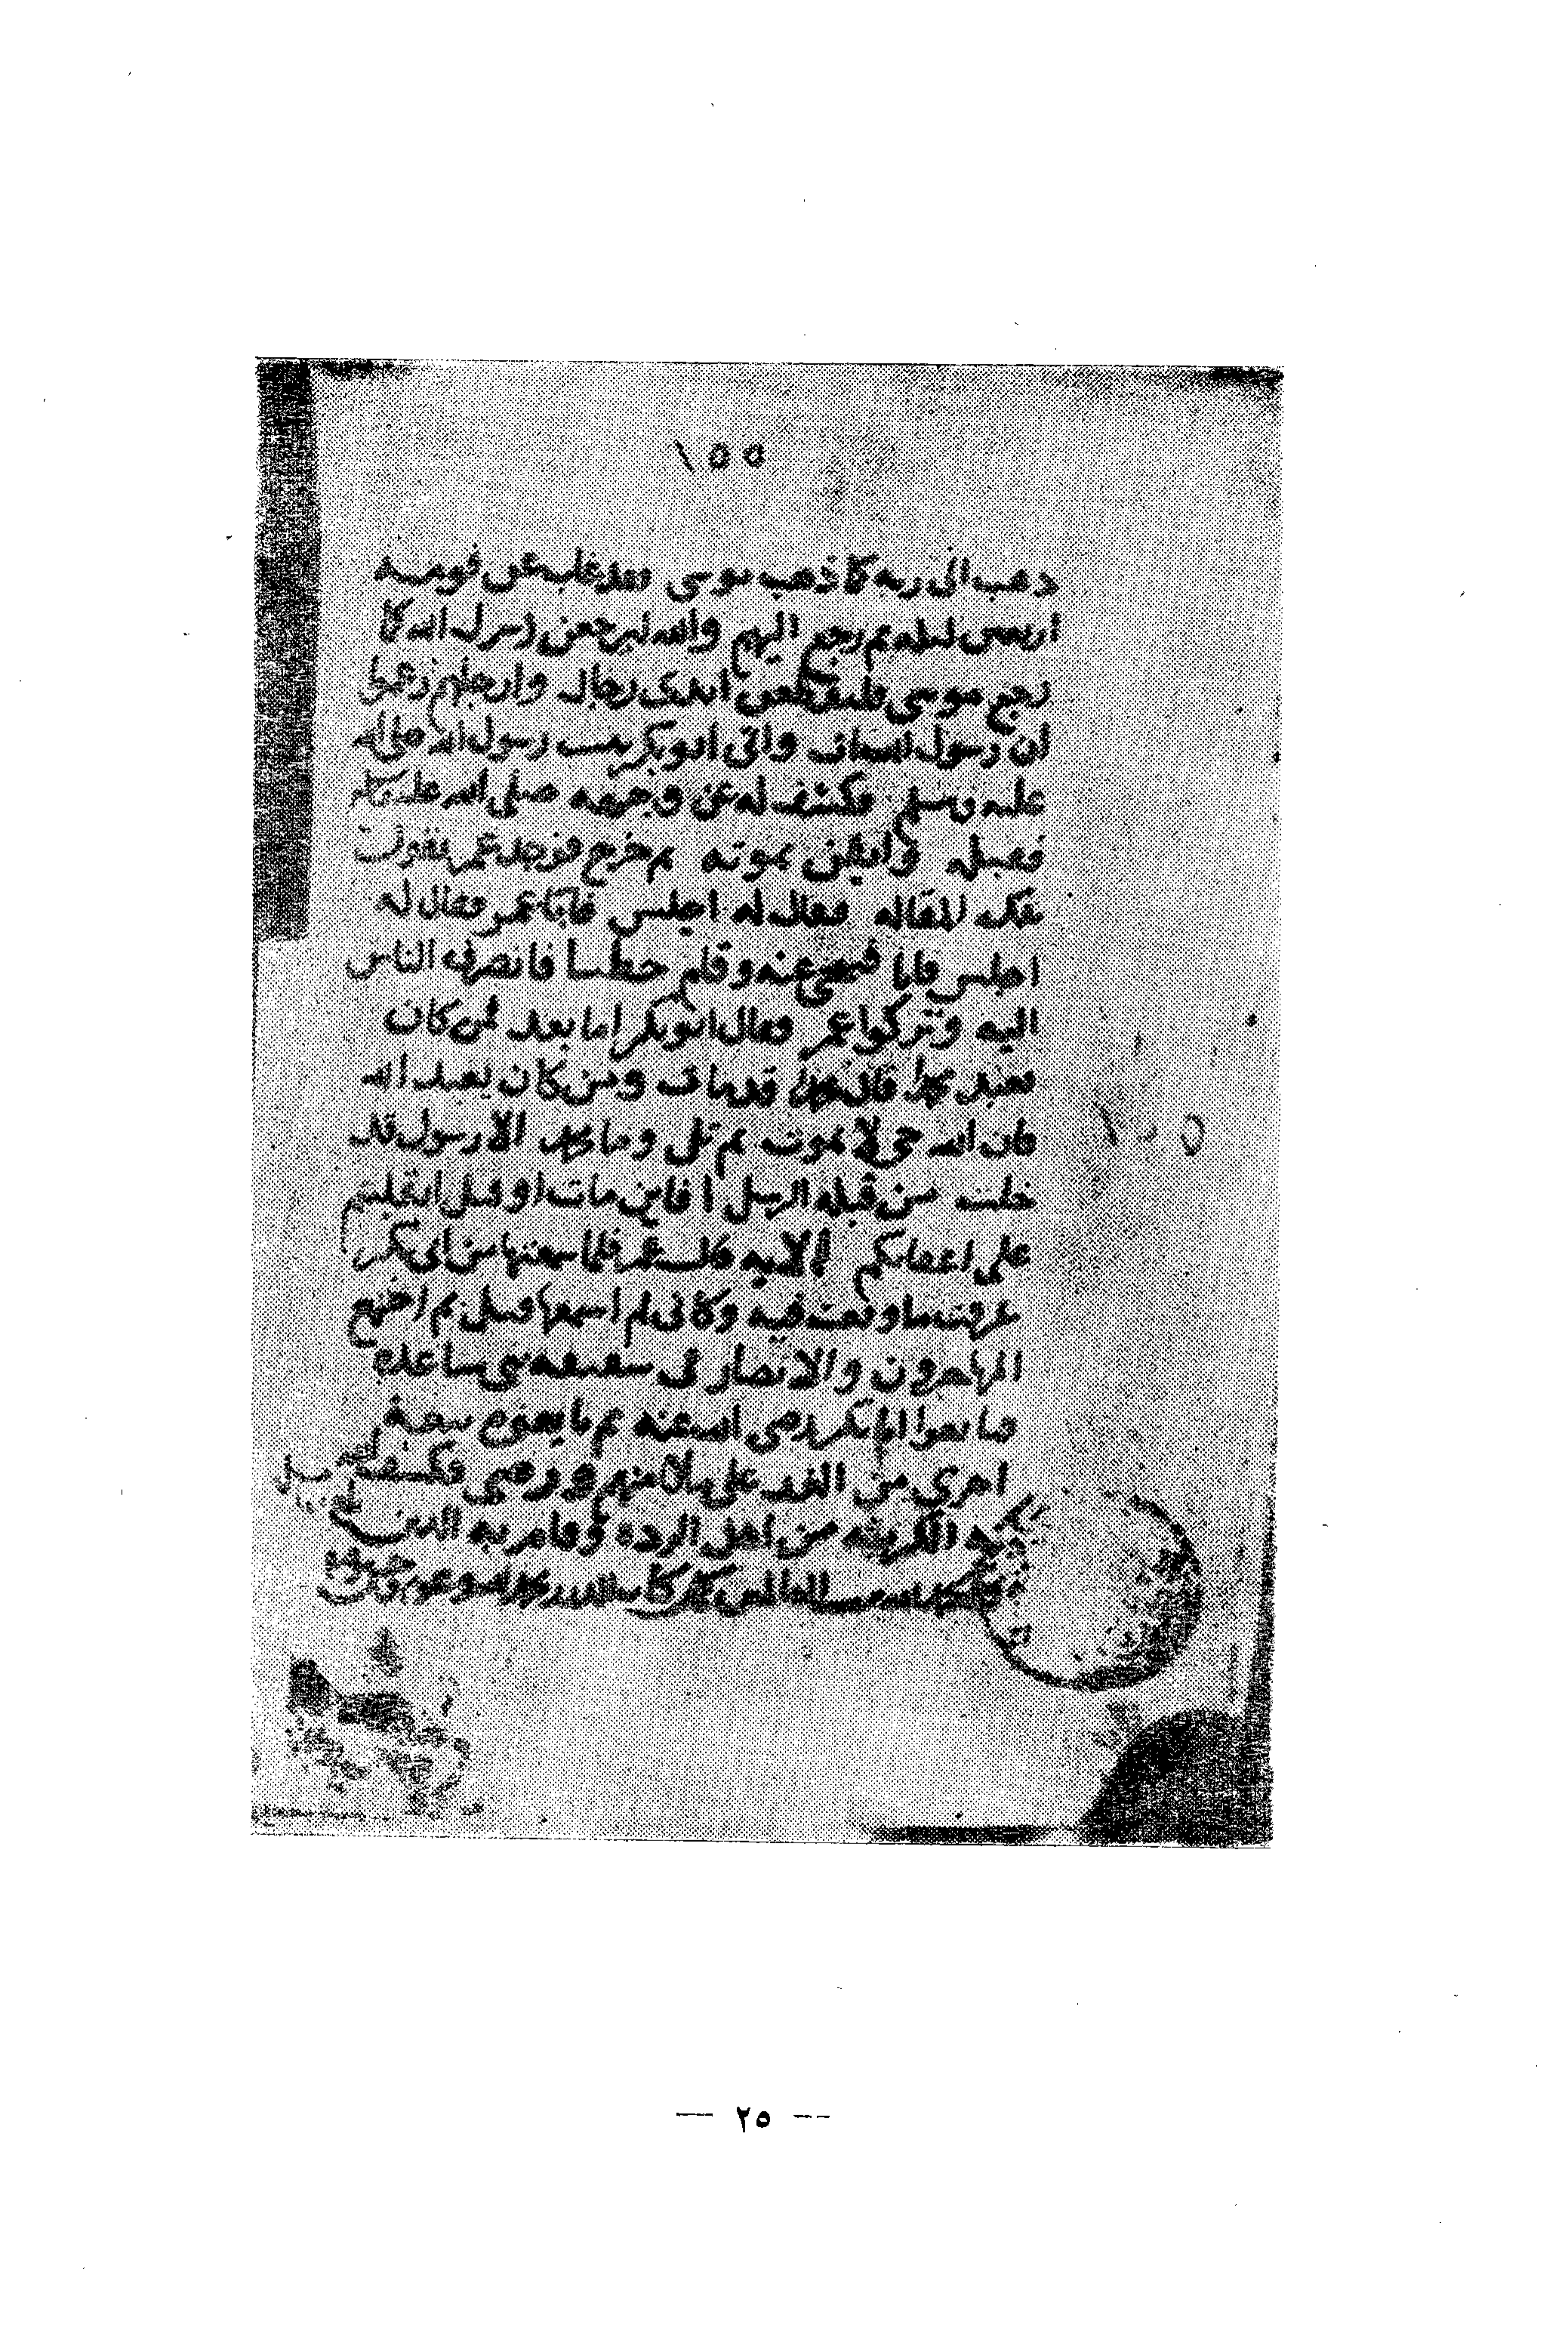 ١٥٥
ذهب الى ربه كما ذهب موسى فقد غاب عن قومه
اربعين ليله ثم رجع اليهم والله ليرجعن رسول الله كما
رجع موسى فليقطعن ايدي رجال وارجلهم زعموا
ان رسول الله مات واتى ابو بكر بيت رسول الله صلى الله
عليه وسلم فكشف له عن وجهه صلى الله عليه وسلم
فقبله وايقن بموته ثم خرج فوجد عمر يقول
تلك المقاله فقال له اجلس فابا عمر فقال له
اجلس فابا فتنحى عنه وقام خطيبا فانصرف الناس
اليه وتركوا عمر فقال ابو بكر اما بعد فمن كان
يعبد محمدا فان محمدا قد مات ومن كان يعبد الله
فان الله حي لا يموت ثم تلى وما محمد الا رسول قد
خلت من قبله الرسل افاين مات او قتل انقلبتم
على اعقابكم الايه قال عمر فلما سمعتها من ابى بكر
عرفت ما وقعت فيه وكانى لم اسمعها قبل ثم اجتمع
المهاجرون والانصار في سقيفه بني ساعده
فبايعوا ابا بكر رضي الله عنه ثم بايعوه بيعة
اخرى من الغد على ملا منهم ورضى فكشف الله
به الكربه من اهل الرده وقام به الدين
والحمد لله رب العالمين كمل كتاب الدرر بحمد الله وعونه
١٥٥
— ٢٥ —